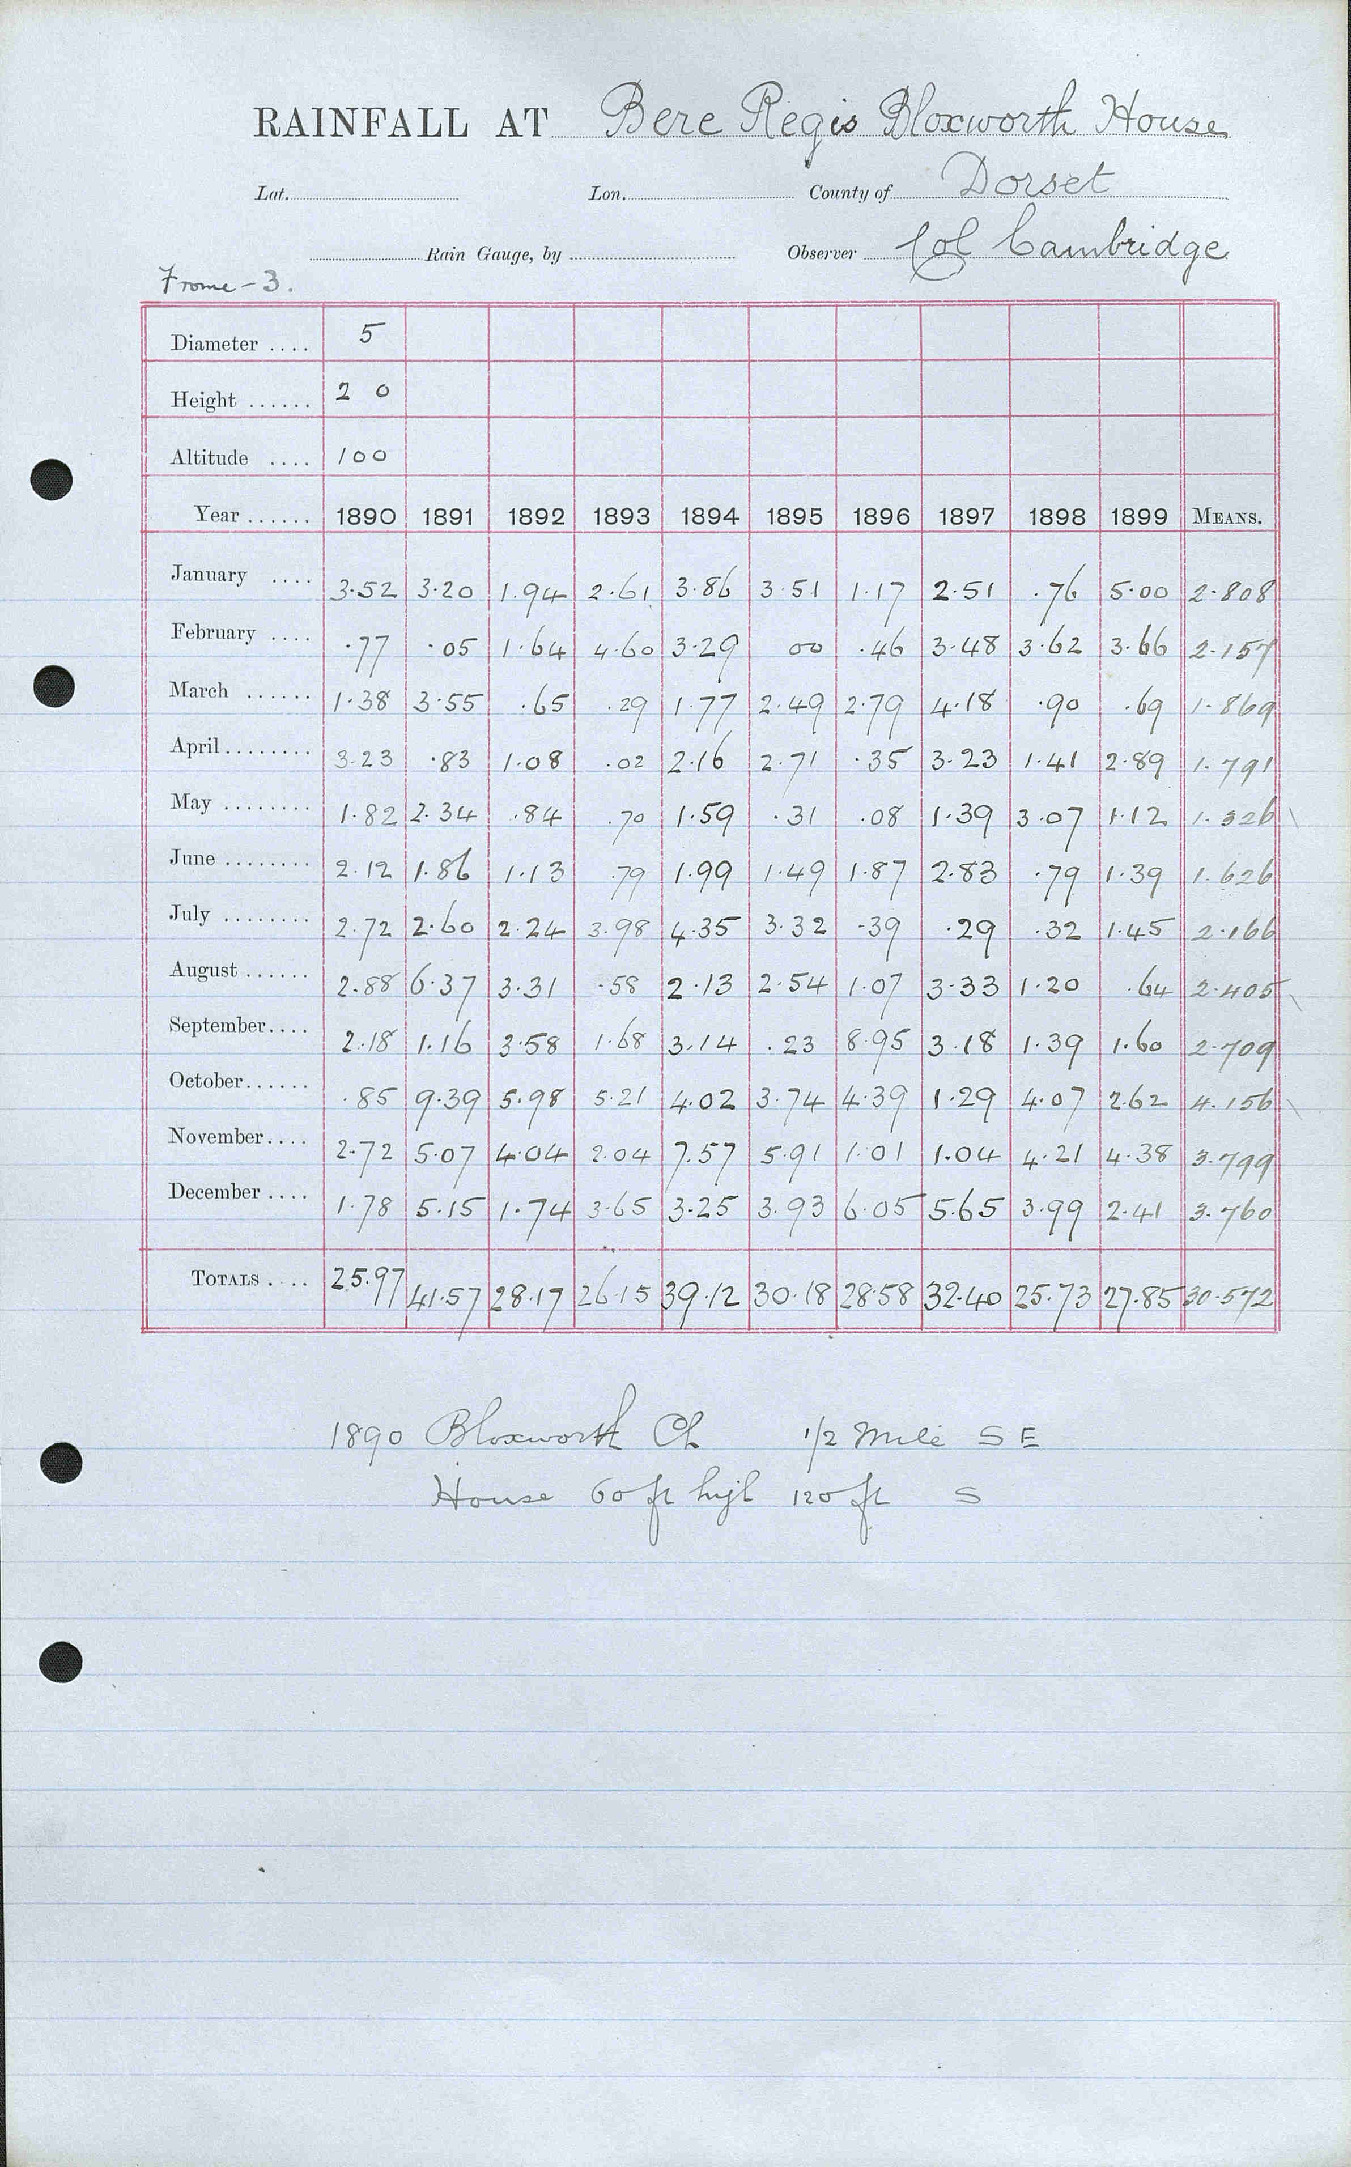 RAINFALL AT Bere Regis Bloxworth House
Lat. Lon. County of Dorset
Rain Gauge, by Observer Col Cambridge
Frome - 3.
Diameter .... 5
Height ...... 2 0
Altitude .... 100
Year ...... 1890 1891 1892 1893 1894 1895 1896 1897 1898 1899 MEANS.
January .... 3.52 3.20 1.94 2.61 3.86 3.51 1.17 2.51 .76 5.00 2.808
February .... .77 .05 1.64 4.60 3.29 00 .46 3.48 3.62 3.66 2.157
March ...... 1.38 3.55 .65 .29 1.77 2.49 2.79 4.18 .90 .69 1.869
April ........ 3.23 .83 1.08 .02 2.16 2.71 .35 3.23 1.41 2.89 1.791
May ........ 1.82 2.34 .84 .70 1.59 .31 .08 1.39 3.07 1.12 1.326
June ........ 2.12 1.86 1.13 .79 1.99 1.49 1.87 2.83 .79 1.39 1.626
July ........ 2.72 2.60 2.24 3.98 4.35 3.32 .39 .29 .32 1.45 2.166
August ...... 2.88 6.37 3.31 .58 2.13 2.54 1.07 3.33 1.20 .64 2.405
September .... 2.18 1.16 3.58 1.68 3.14 .23 8.95 3.18 1.39 1.60 2.709
October ...... .85 9.39 5.98 5.21 4.02 3.74 4.39 1.29 4.07 2.62 4.156
November .... 2.72 5.07 4.04 2.04 7.57 5.91 1.01 1.04 4.21 4.38 3.799
December .... 1.78 5.15 1.74 3.65 3.25 3.93 6.05 5.65 3.99 2.41 3.760
TOTALS .... 25.97 41.57 28.17 26.15 39.12 30.18 28.58 32.40 25.73 27.85 30.572
1890 Bloxworth Ch 1/2 Mile S E
House 60 ft high 120 ft S